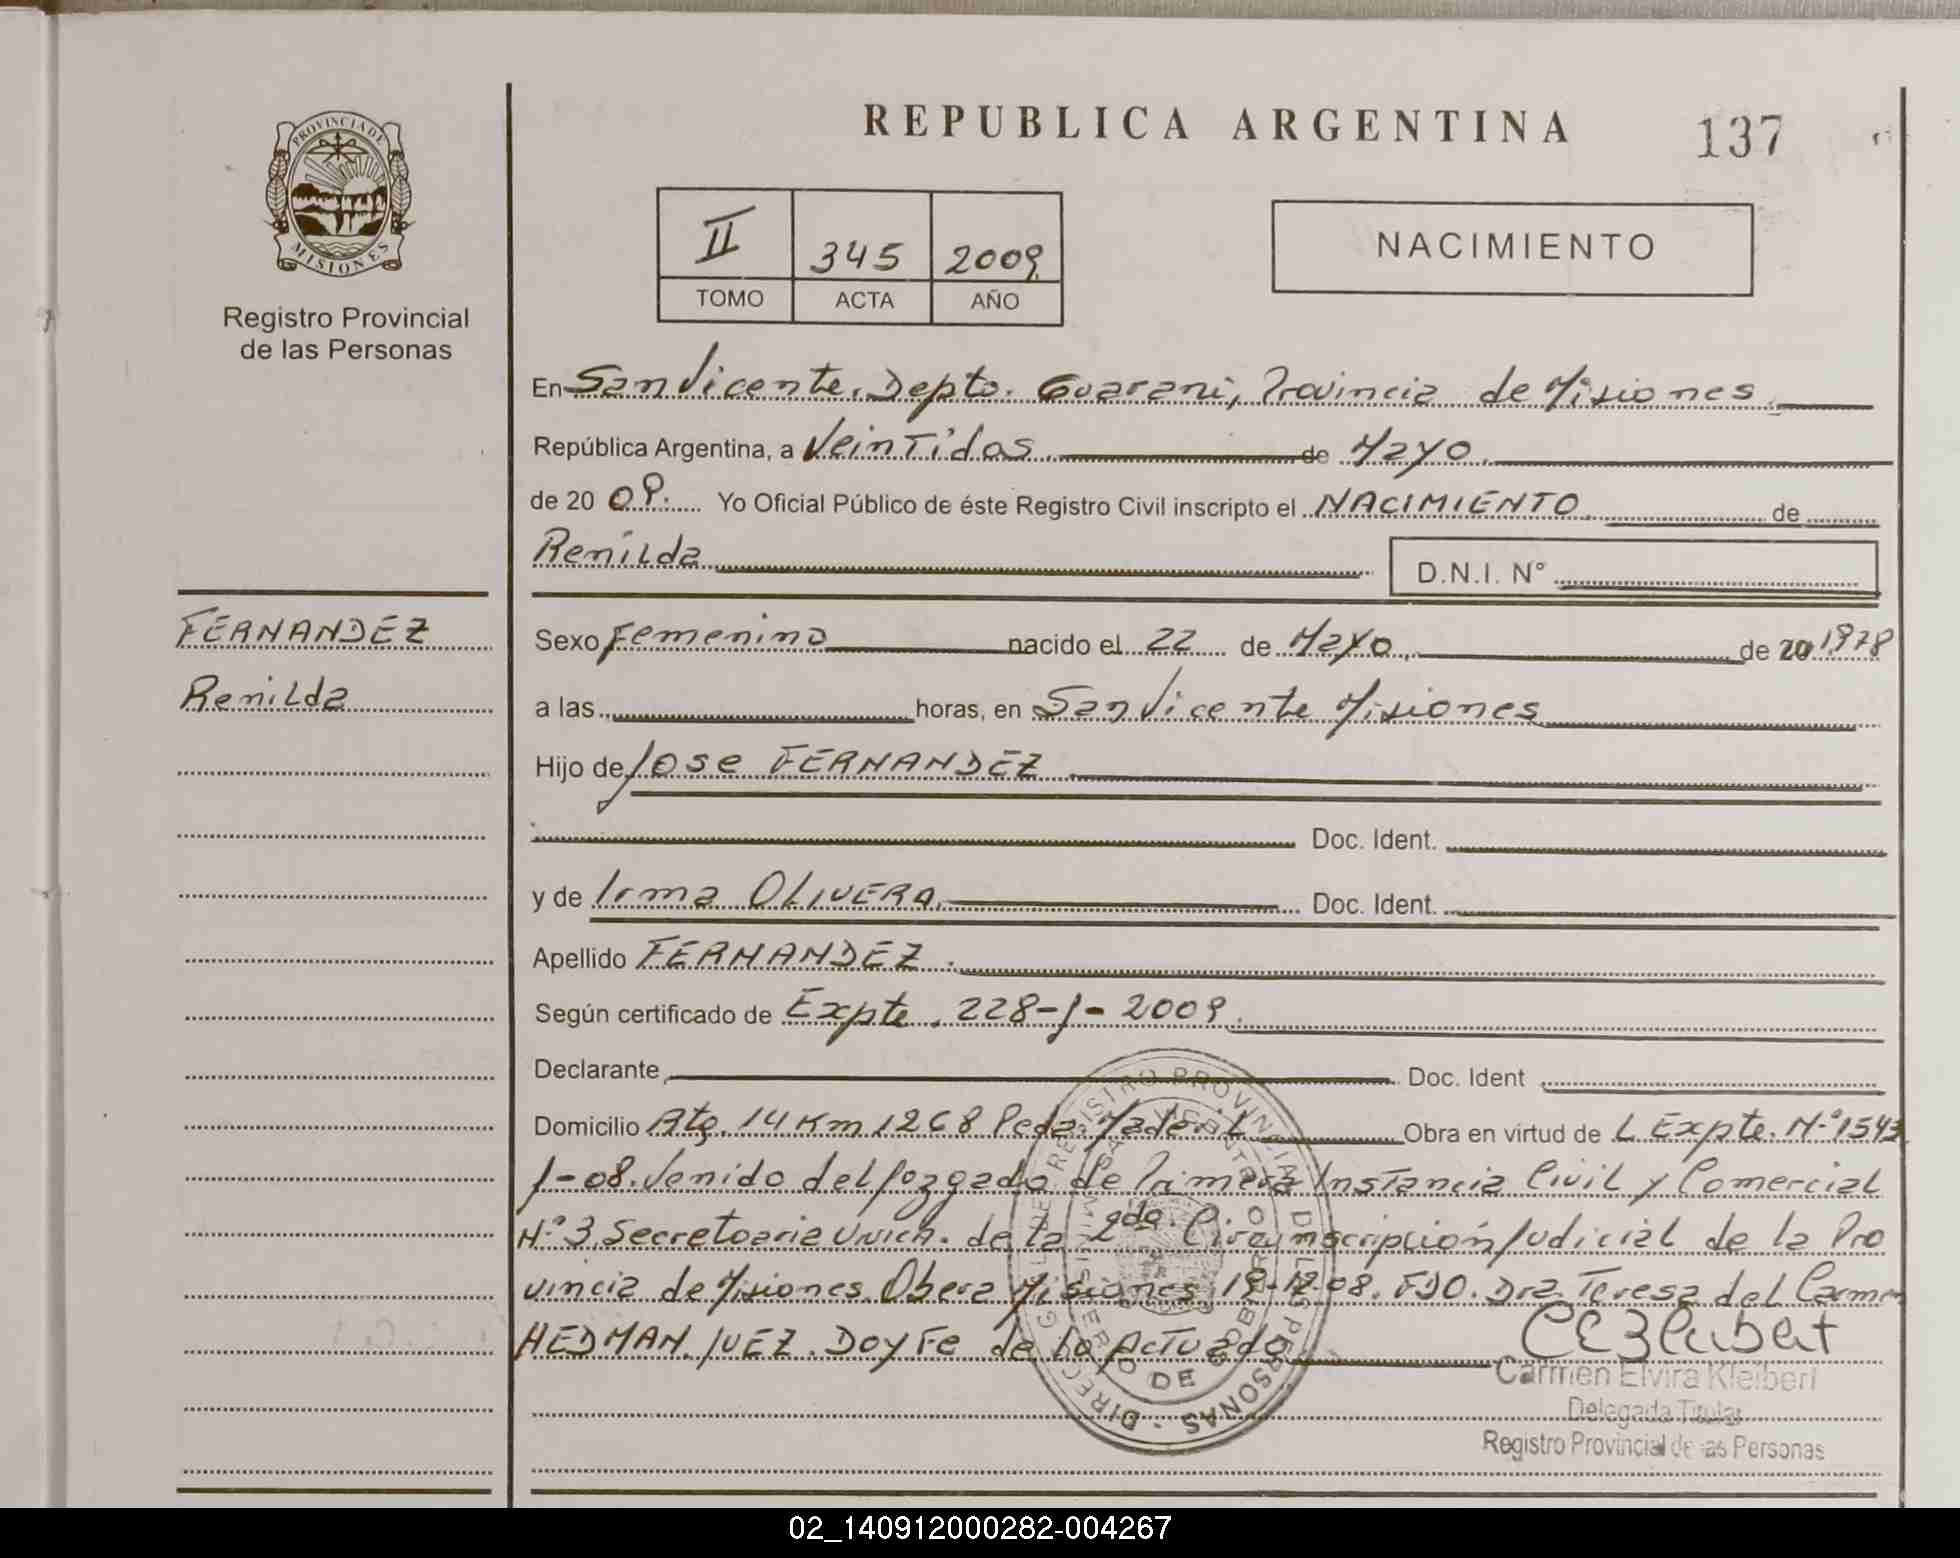 PROVINCIA DE
MISIONES
Registro Provincial
de las Personas
FERNANDEZ
Renilda
REPUBLICA ARGENTINA 137
II 345 2009
TOMO ACTA AÑO
NACIMIENTO
En San Vicente, Depto. Guarani, Provincia de Misiones
República Argentina, a Veintidos de Mayo
de 20 09. Yo Oficial Público de éste Registro Civil inscripto el NACIMIENTO de
Renilda D.N.I. N°
Sexo Femenino nacido el 22 de Mayo de 20 1978
a las horas, en San Vicente Misiones
Hijo de Jose FERNANDEZ
Doc. Ident.
y de Irma OLIVERA Doc. Ident.
Apellido FERNANDEZ.
Según certificado de Expte. 228-J-2009.
Declarante Doc. Ident
Domicilio 14 Km 1268 Obra en virtud de L Expte. N° 1543
J-08. Venido del Juzgado de Primera Instancia Civil y Comercial
N° 3 Secretoaria Unica. de la 2da. Circunscripción Judicial de la Pro
vincia de Misiones. Obera Misiones 19-12-08. FDO. Dra. Teresa del Carmen
HEDMAN. JUEZ. Doy Fe de lo Actuado
Carmen Elvira Kleibert
Delegada Titular
Registro Provincial de las Personas
02_140912000282-004267